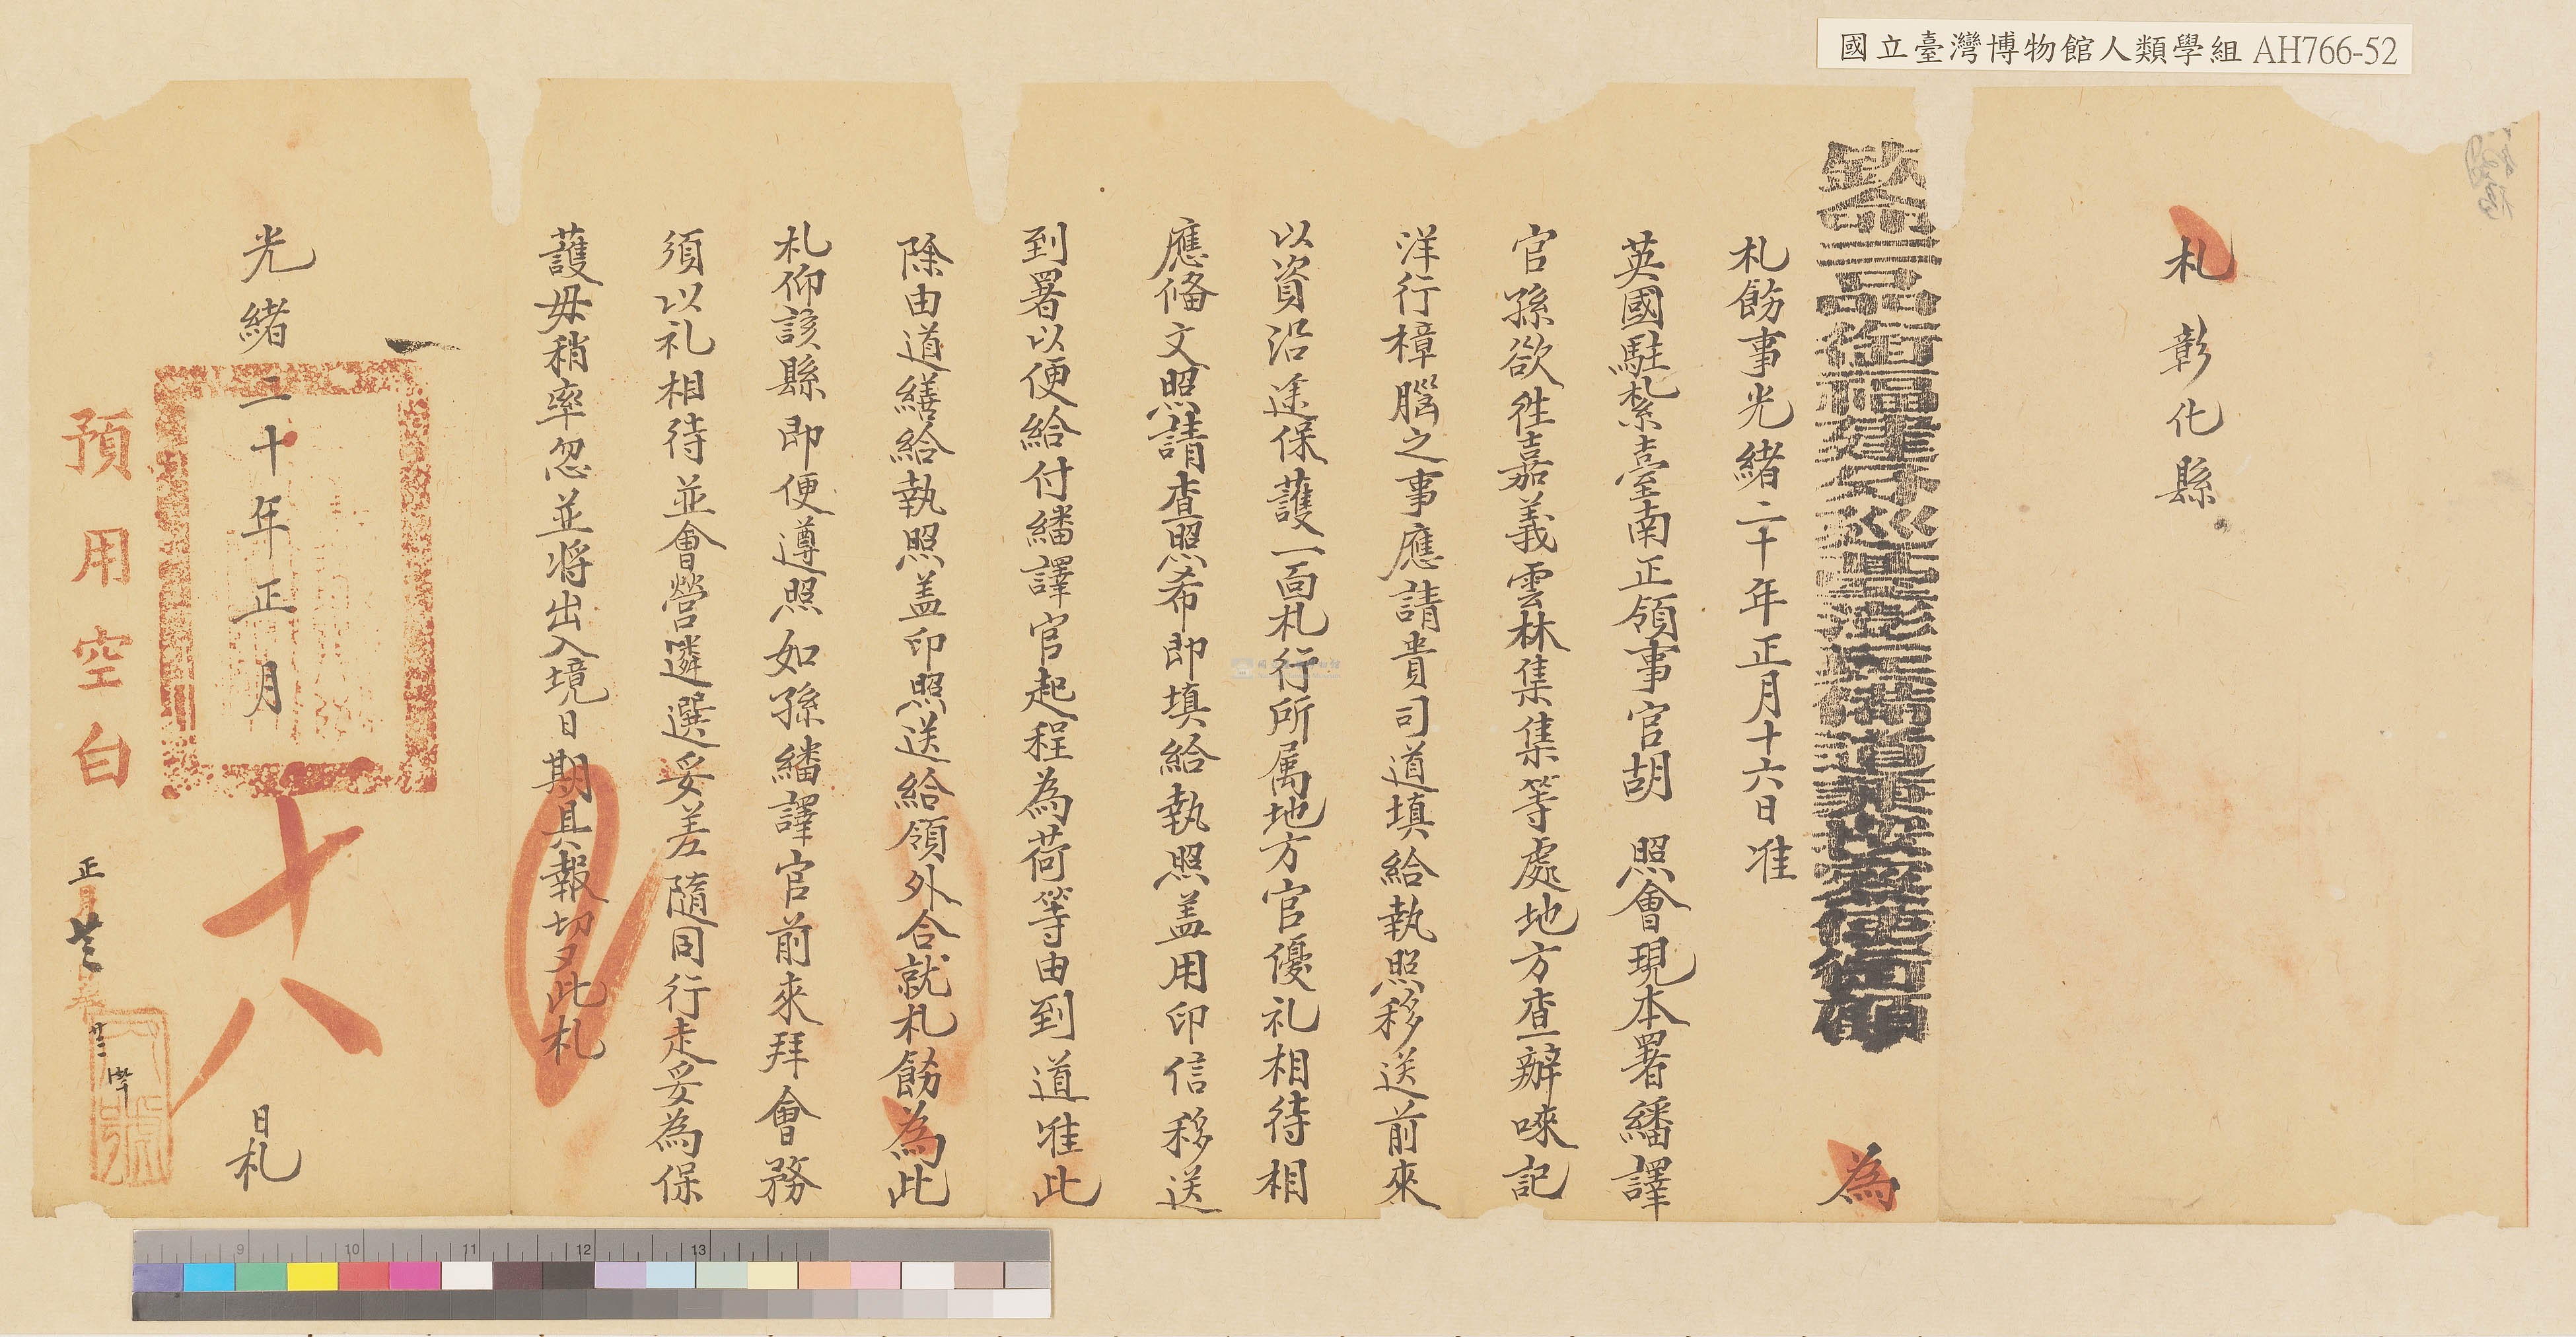 國立臺灣博物館人類學組 AH766-52
札 彰化縣
欽命二品銜福建分巡臺澎兵備道兼按察使銜顧 為
札飭事光緒二十年正月十六日准
英國駐紮臺南正領事官胡 照會現本署繙譯
官孫欲徃嘉義雲林集集等處地方查辦㖿記
洋行樟腦之事應請貴司道填給執照移送前來
以資沿途保護一面札行所属地方官優礼相待相
應俻文照請查照希即填給執照盖用印信移送
到署以便給付繙譯官起程為荷等由到道准此
除由道繕給執照盖印照送給領外合就札飭為此
札仰該縣即便遵照如孫繙譯官前來拜會務
須以礼相待並會營遴選妥差隨同行走妥為保
護毋稍率忽並將出入境日期具報切切此札
光緒二十年正月 十八 日札
預用空白
正月廿三
9 10 11 12 13